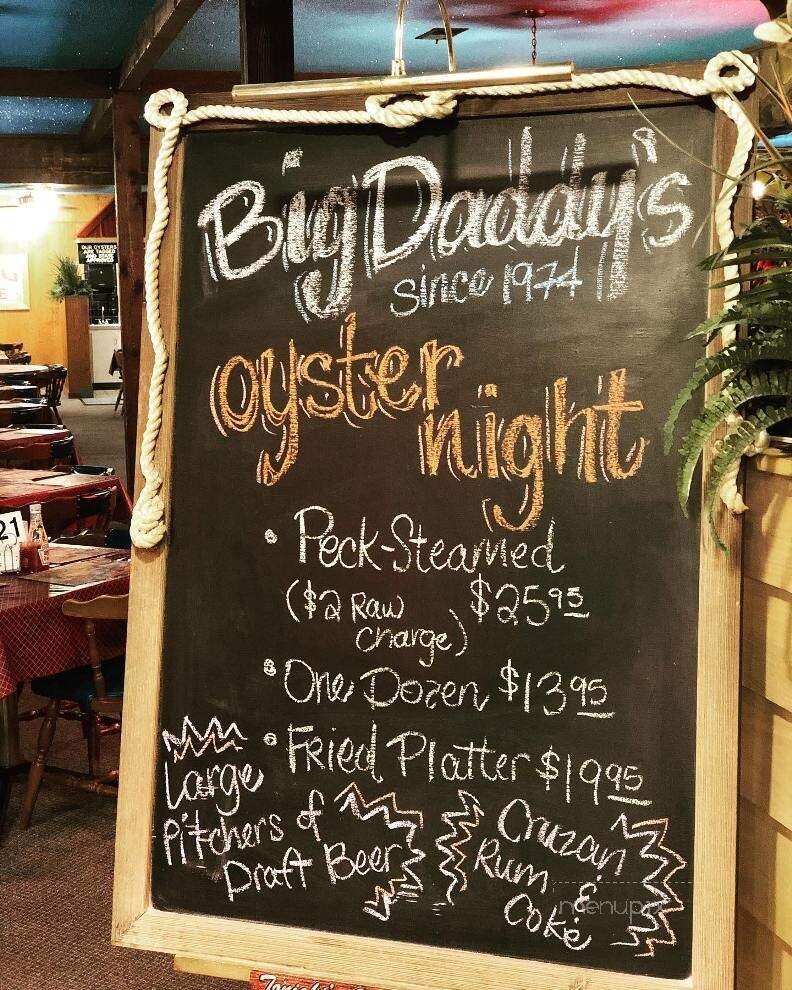 Big Daddy's
since 1974
oyster
night
• Peck-Steamed
($2 Raw $25 95
charge)
• One Dozen $13 95
• Fried Platter $19 95
Large
Pitchers of
Draft Beer
Cruzan
Rum &
Coke
OUR OYSTERS
ARE TAGGED
AND STATE
APPROVED
21